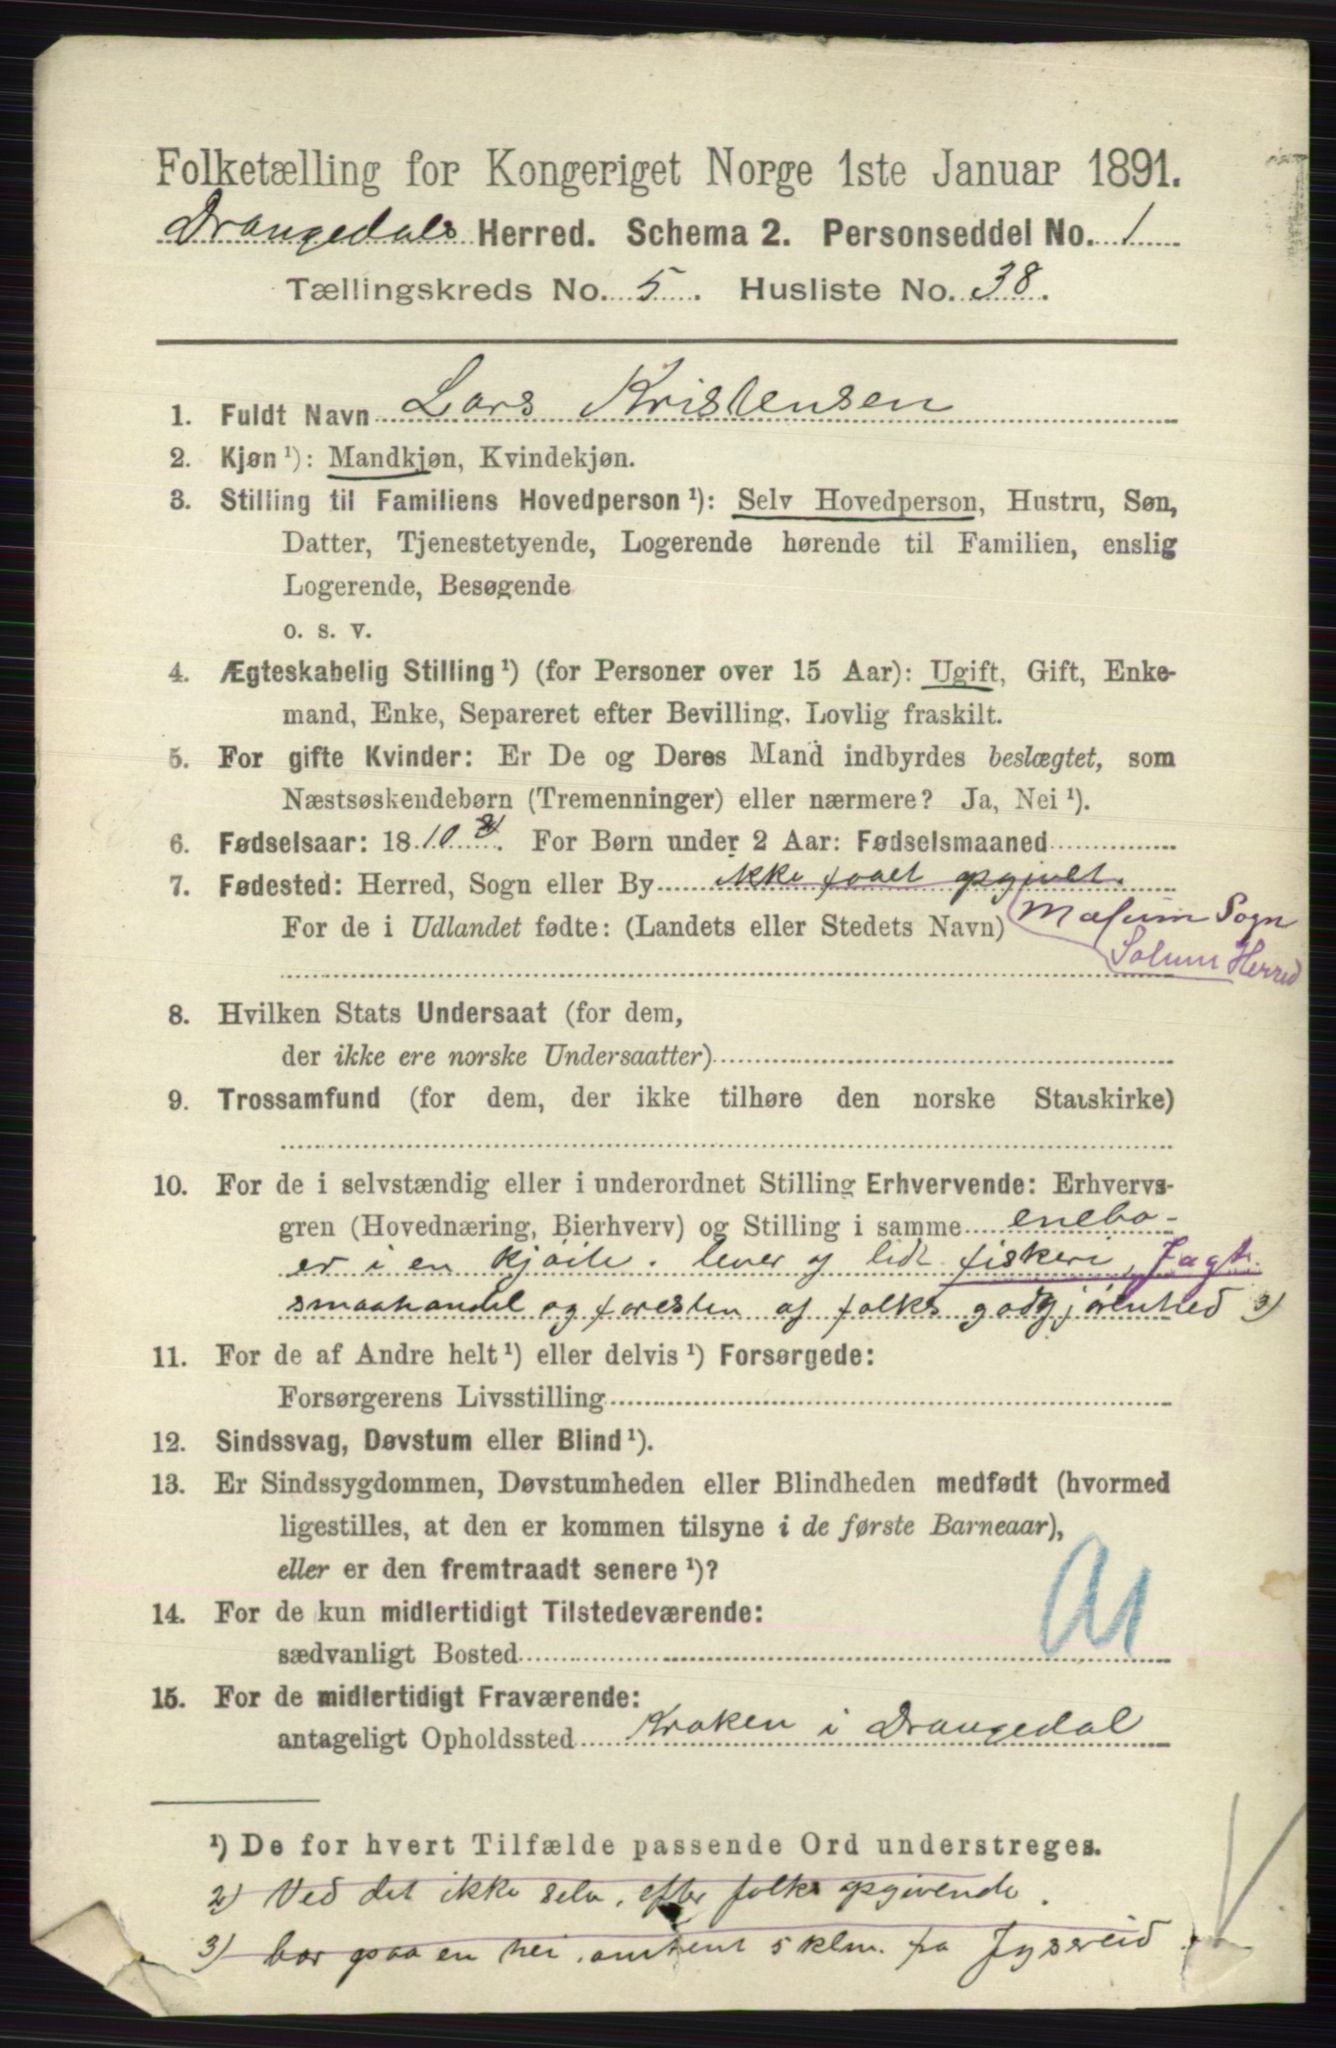 Folketælling for Kongeriget Norge 1ste Januar 1891.
Drangedals Herred. Schema 2. Personseddel No. 1
Tællingskreds No. 5. Husliste No. 38.
1. Fuldt Navn Lars Kristensen
2. Kjøn ¹): Mandkjøn, Kvindekjøn.
3. Stilling til Familiens Hovedperson ¹): Selv Hovedperson, Hustru, Søn,
Datter, Tjenestetyende, Logerende hørende til Familien, enslig
Logerende, Besøgende
o. s. v.
4. Ægteskabelig Stilling ¹) (for Personer over 15 Aar): Ugift, Gift, Enke-
mand, Enke, Separeret efter Bevilling. Lovlig fraskilt.
5. For gifte Kvinder: Er De og Deres Mand indbyrdes beslægtet, som
Næstsøskendebørn (Tremenninger) eller nærmere? Ja, Nei ¹).
6. Fødselsaar: 1810 2). For Børn under 2 Aar: Fødselsmaaned
7. Fødested: Herred, Sogn eller By ikke faaet opgivet.
For de i Udlandet fødte: (Landets eller Stedets Navn) Mælum Sogn
Solum Herred
8. Hvilken Stats Undersaat (for dem,
der ikke ere norske Undersaatter)
9. Trossamfund (for dem, der ikke tilhøre den norske Statskirke)
10. For de i selvstændig eller i underordnet Stilling Erhvervende: Erhvervs-
gren (Hovednæring, Bierhverv) og Stilling i samme enebo-
er i en lever af lidt fiskeri, Jagt
smaahandel og foresten af folks godgjørenhed 3)
11. For de af Andre helt ¹) eller delvis ¹) Forsørgede:
Forsørgerens Livsstilling
12. Sindssvag, Døvstum eller Blind ¹).
13. Er Sindssygdommen, Døvstumheden eller Blindheden medfødt (hvormed
ligestilles, at den er kommen tilsyne i de første Barneaar),
eller er den fremtraadt senere ¹)?
14. For de kun midlertidigt Tilstedeværende:
sædvanligt Bosted
15. For de midlertidigt Fraværende:
antageligt Opholdssted Kroken i Drangedal
¹) De for hvert Tilfælde passende Ord understreges.
2) Ved det ikke selv, efter folks opgivende.
3) bor paa en hei, omtrent 5 klm. fra